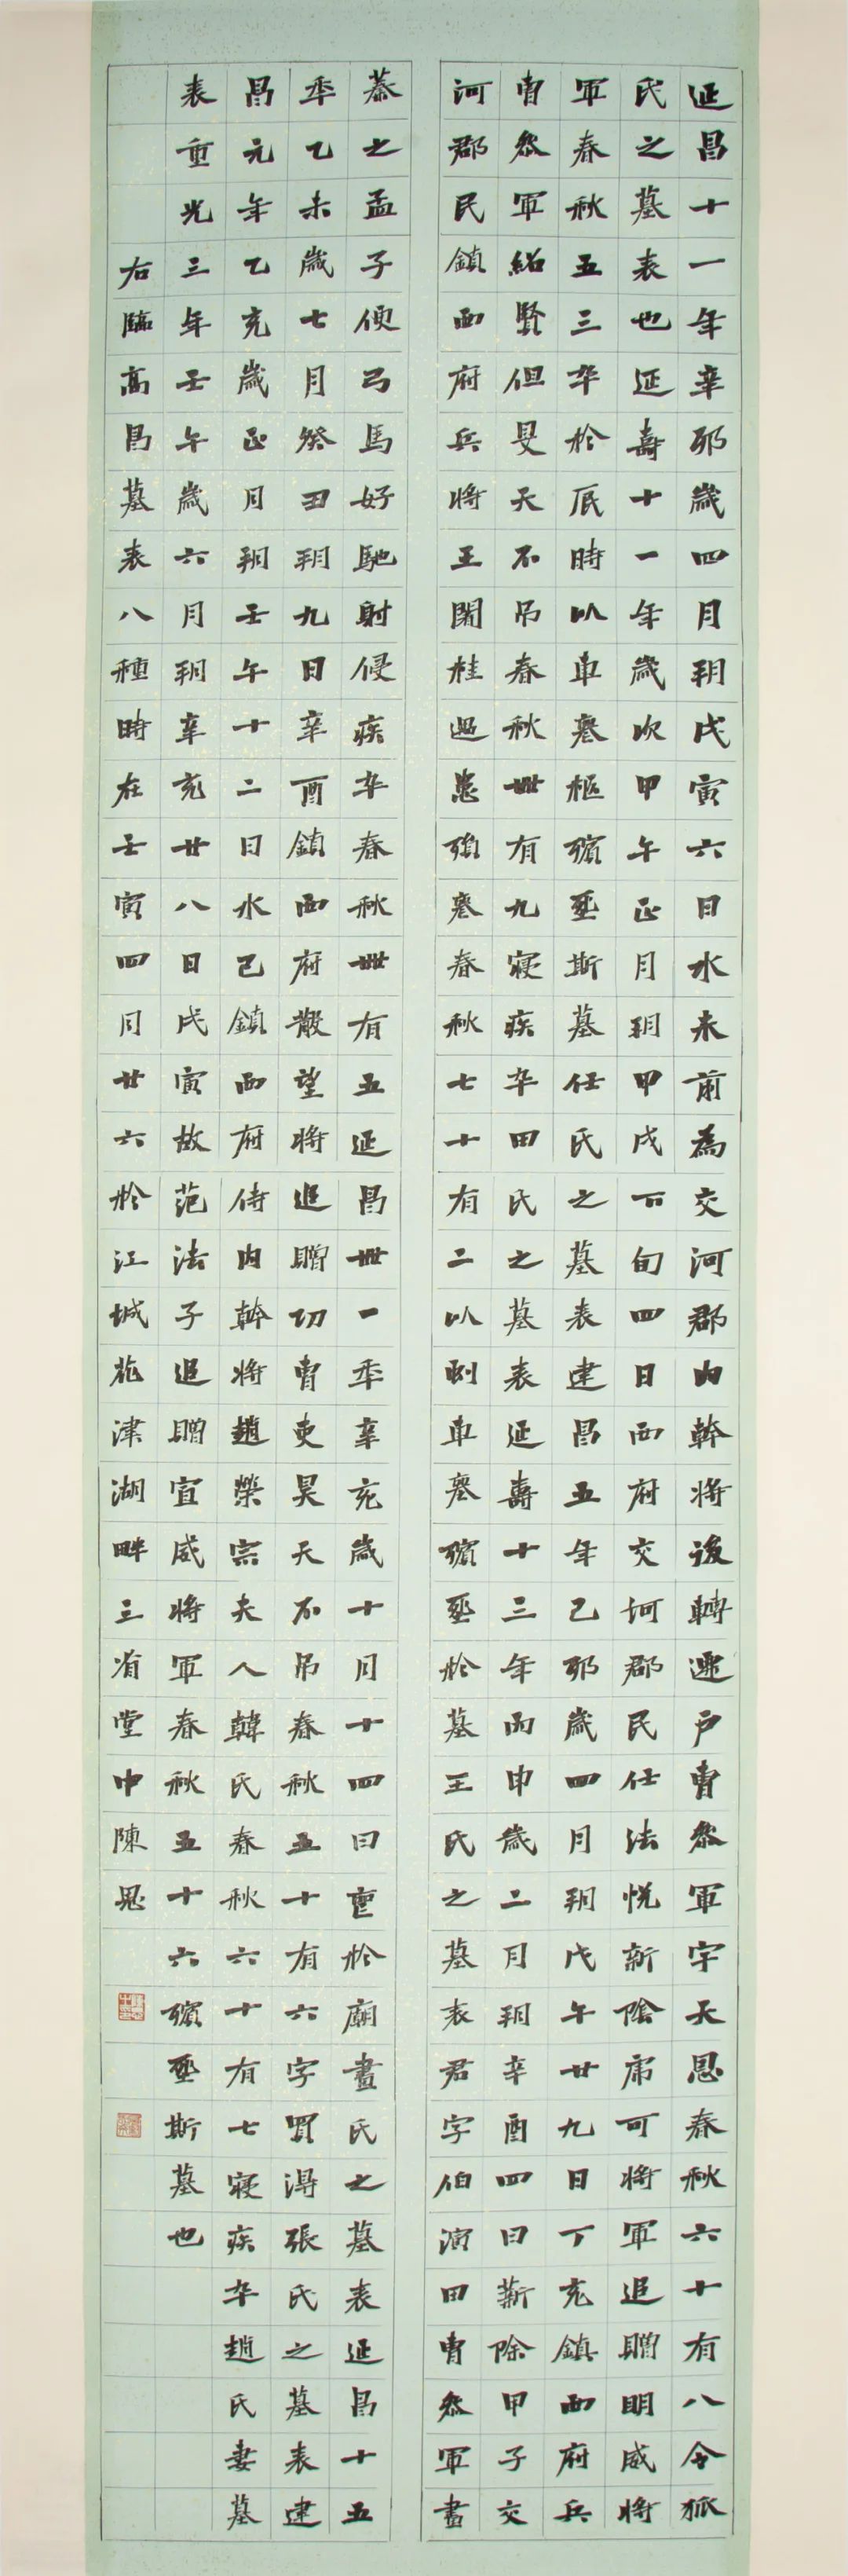 延昌十一年辛卯歲四月朔戊寅六日水未前為交河郡內幹將後轉遷戶曹叅軍字天恩春秋六十有八令狐
氏之墓表也延壽十一年歲次甲午正月朔甲戌下旬四日西府交河郡民任法悅新除虎可將軍追贈明威將
軍春秋五三卒於厎時以車轝柩殯𦵏斯墓任氏之墓表建昌五年己卯歲四月朔戊午廿九日丁亥鎮西府兵
曹叅軍紹賢但旻天不吊春秋卌有九寢疾卒田氏之墓表延壽十三年丙申歲二月朔辛酉四日新除甲子交
河郡民鎮西府兵將王闍桂遇患殞轝春秋七十有二以剋車轝殯𦵏於墓王氏之墓表君字伯演田曹叅軍畫
纂之孟子便弓馬好馳射侵疾卒春秋卌有五延昌卌一年辛亥歲十月十四日喪於廟畫氏之墓表延昌十五
年乙未歲七月癸丑朔九日辛酉鎮西府散望將追贈功曹吏昊天不吊春秋五十有六字買得張氏之墓表建
昌元年乙亥歲正月朔壬午十二日水己鎮西府侍內幹將趙榮宗夫人韓氏春秋六十有七寢疾卒趙氏妻墓
表重光三年壬午歲六月朔辛亥廿八日戊寅故范法子追贈宣威將軍春秋五十六殯𦵏斯墓也
右臨高昌墓表八種時在壬寅四月廿六於江城花津湖畔三省堂中陳